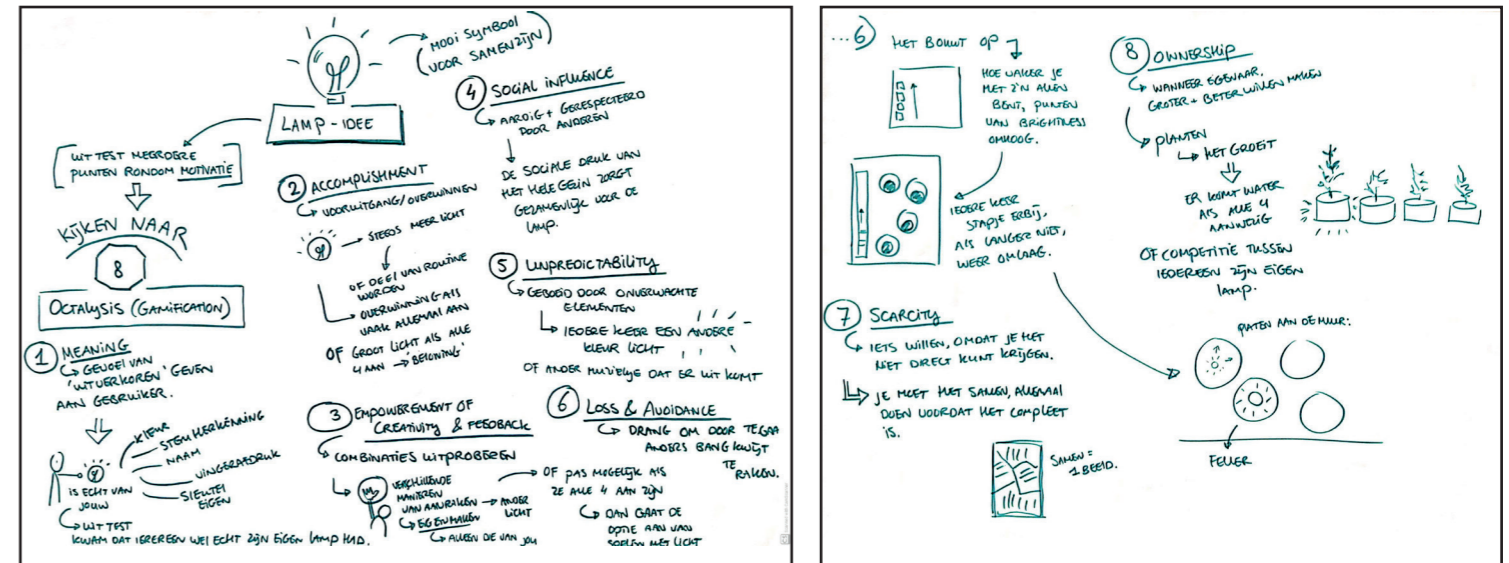 MOOI SYMBOOL
VOOR SAMENZIJN
LAMP-IDEE
UIT TEST MEERDERE
PUNTEN RONDOM MOTIVATIE
KIJKEN NAAR
8
OCTALYSIS (GAMIFICATION)
1 MEANING
GEVOEL VAN
'UITVERKOREN' GEVEN
AAN GEBRUIKER.
KLEUR
STEMHERKENNING
NAAM
VINGERAFDRUK
SLEUTEL
EIGEN
IS ECHT VAN
JOUW
UIT TEST
KWAM DAT IEDEREEN WEL ECHT ZIJN EIGEN LAMP HAD.
2 ACCOMPLISHMENT
VOORUITGANG/OVERWINNEN
STEEDS MEER LICHT
OF DEEL VAN ROUTINE
WORDEN
OVERWINNING ALS
VAAK ALLEMAAL AAN
OF GROOT LICHT ALS ALLE
4 AAN → 'BELONING'
3 EMPOWEREMENT OF
CREATIVITY & FEEDBACK
COMBINATIES UITPROBEREN
VERSCHILLENDE
MANIEREN
VAN AANRAKEN → ANDER
LICHT
EIGEN MAKEN
ALLEEN DIE VAN JOU
OF PAS MOGELIJK ALS
ZE ALLE 4 AAN ZIJN
DAN GAAT DE
OPTIE AAN VAN
SPELEN MET LICHT
4 SOCIAL INFLUENCE
AARDIG + GERESPECTEERD
DOOR ANDEREN
DE SOCIALE DRUK VAN
HET HELE GEZIN ZORGT
GEZAMENLIJK VOOR DE
LAMP.
5 UNPREDICTABILITY
GEBOEID DOOR ONVERWACHTE
ELEMENTEN
IEDERE KEER EEN ANDERE
KLEUR LICHT
OF ANDER MUZIEKJE DAT ER UIT KOMT
6 LOSS & AVOIDANCE
DRANG OM DOOR TE GAA
ANDERS BANG KWIJT
TE
RAKEN.
...6) HET BOUWT OP
HOE VAKER JE
MET Z'N ALLEN
BENT, PUNTEN
VAN BRIGHTNESS
OMHOOG.
IEDERE KEER
STAPJE ERBIJ,
ALS LANGER NIET,
WEER OMLAAG.
7 SCARCITY
IETS WILLEN, OMDAT JE HET
NIET DIRECT KUNT KRIJGEN.
JE MOET HET SAMEN, ALLEMAAL
DOEN VOORDAT HET COMPLEET
IS.
SAMEN =
1 BEELD.
8 OWNERSHIP
WANNEER EIGENAAR,
GROTER + BETER WILLEN MAKEN
PLANTEN
HET GROEIT
ER KOMT WATER
ALS ALLE 4
AANWEZIG
OF COMPETITIE TUSSEN
IEDEREEN ZIJN EIGEN
LAMP.
PLATEN AAN DE MUUR:
FELLER